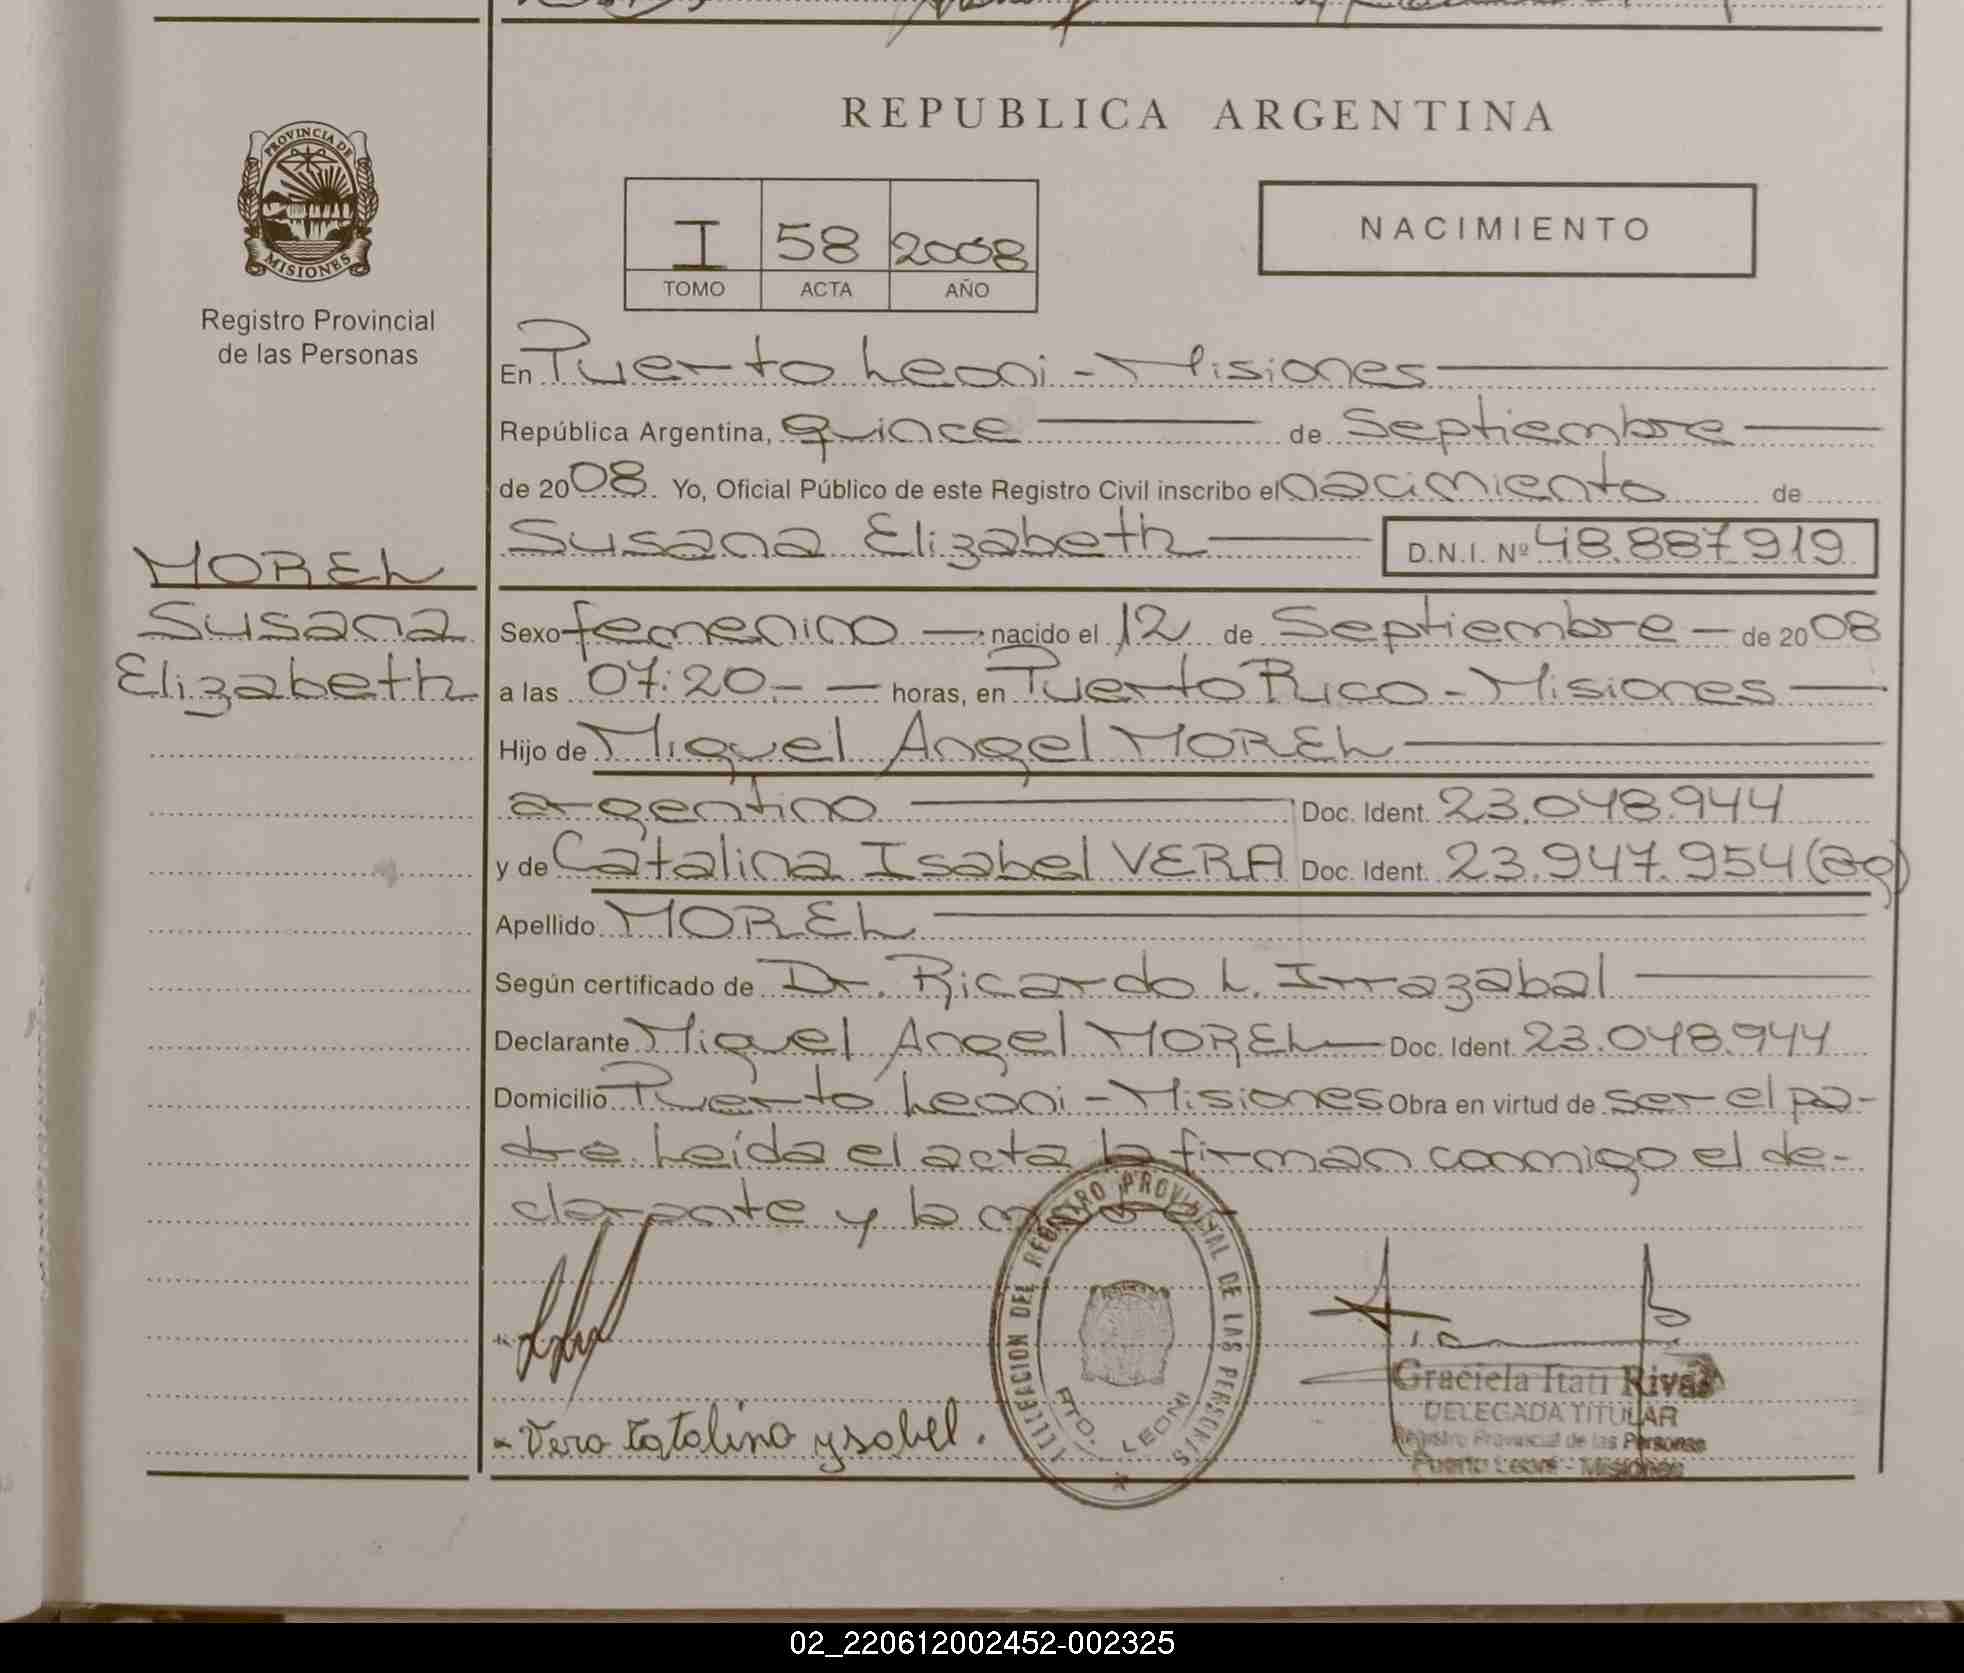 REPUBLICA ARGENTINA
PROVINCIA DE
MISIONES
Registro Provincial
de las Personas
I 58 2008
TOMO ACTA AÑO
NACIMIENTO
En Puerto Leoni - Misiones
República Argentina, quince de Septiembre
de 2008 Yo, Oficial Público de este Registro Civil inscribo el nacimiento de
Susana Elizabeth D.N.I. Nº 48.887.919
MOREL
Susana
Elizabeth
Sexo femenino nacido el 12 de Septiembre - de 2008
a las 07:20.- - horas, en Puerto Rico - Misiones
Hijo de Miguel Angel MOREL
argentino Doc. Ident. 23.048.944
y de Catalina Isabel VERA Doc. Ident. 23.947.954 (ag)
Apellido MOREL
Según certificado de Dr. Ricardo L. Irrazabal
Declarante Miguel Angel MOREL Doc. Ident. 23.048.944
Domicilio Puerto Leoni - Misiones Obra en virtud de ser el pa-
dre. Leída el acta la firman conmigo el de-
clarante y la madre
DELEGACION DEL REGISTRO PROVINCIAL DE LAS PERSONAS
PTO. LEONI
Graciela Itati Rivas
DELEGADA TITULAR
Registro Provincial de las Personas
Puerto Leoni - Misiones
- Vera Catalina ysabel.
02_220612002452-002325